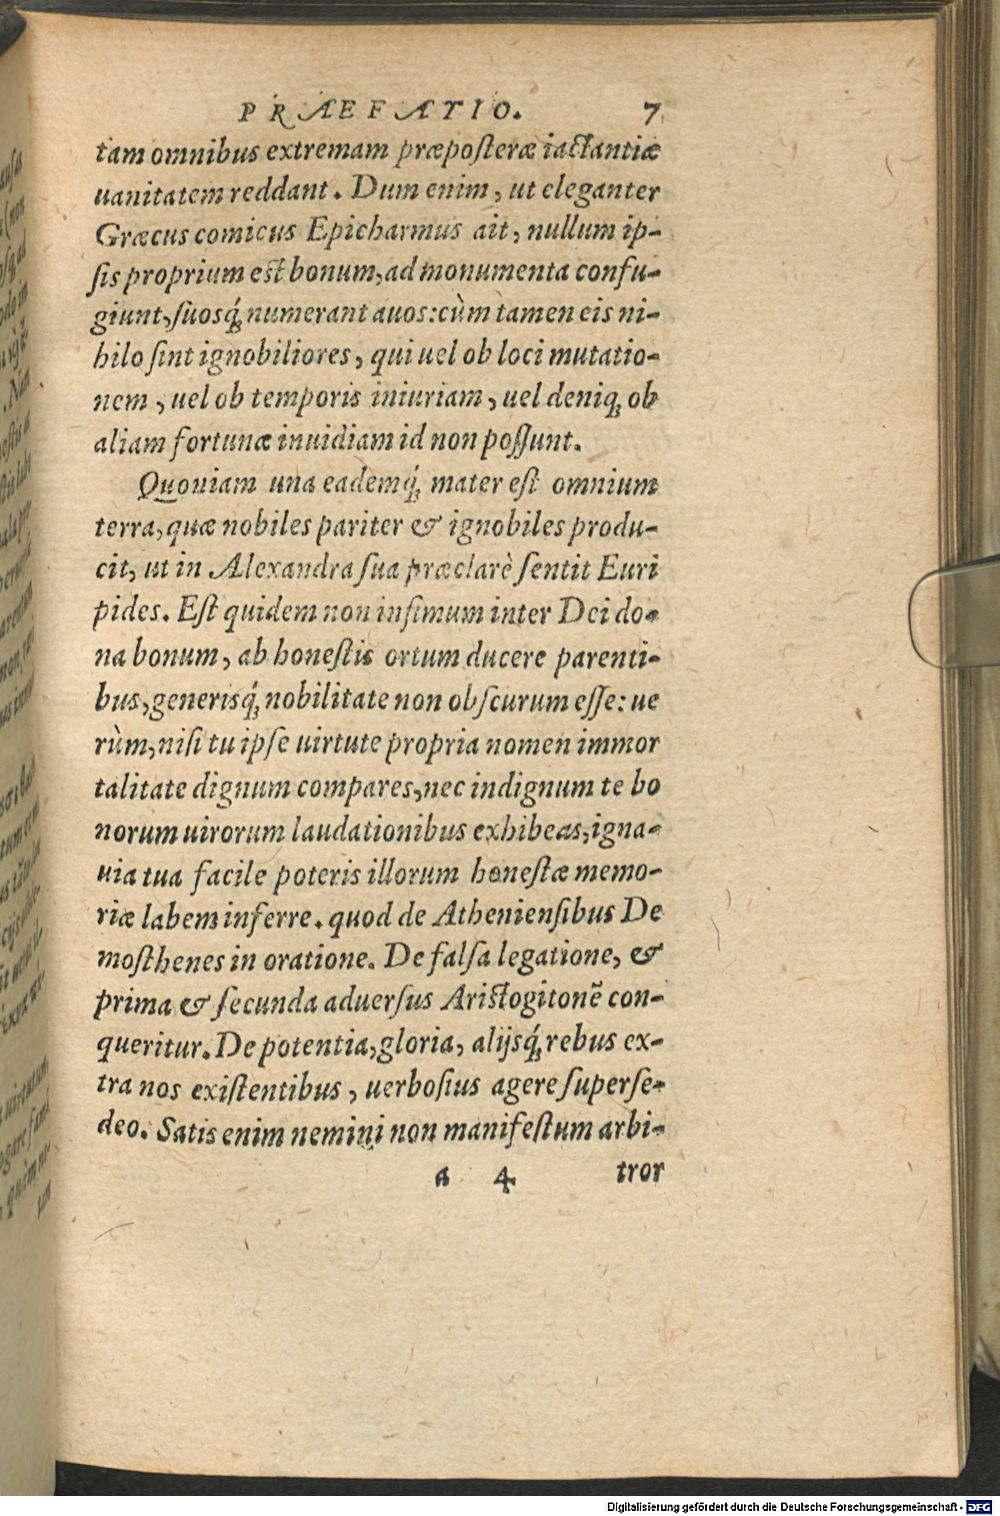 PRÆFATIO. 7
tam omnibus extremam præposteræ iactantiæ
uanitatem reddant. Dum enim, ut eleganter
Græcus comicus Epicharmus ait, nullum ip-
ſis proprium est bonum, ad monumenta confu-
giunt, ſuosq́; numerant auos: cùm tamen eis ni-
hilo ſint ignobiliores, qui uel ob loci mutatio-
nem, uel ob temporis iniuriam, uel deniq; ob
aliam fortunæ inuidiam id non poſſunt.
Quoniam una eademq́; mater eſt omnium
terra, quæ nobiles pariter & ignobiles produ-
cit, ut in Alexandra ſua præclarè ſentit Euri
pides. Eſt quidem non inſimum inter Dei do-
na bonum, ab honeſtis ortum ducere parenti-
bus, generisq́; nobilitate non obſcurum eſſe: ue
rùm, niſi tu ipſe uirtute propria nomen immor
talitate dignum compares, nec indignum te bo
norum uirorum laudationibus exhibeas, igna-
uia tua facile poteris illorum honeſtæ memo-
riæ labem inferre. quod de Athenienſibus De
moſthenes in oratione. De falſa legatione, &
prima & ſecunda aduerſus Ariſtogitonē con-
queritur. De potentia, gloria, alijsq́; rebus ex-
tra nos exiſtentibus, uerboſius agere ſuperſe-
deo. Satis enim nemini non manifeſtum arbi-
a 4 tror
Digitalisierung gefördert durch die Deutsche Forschungsgemeinschaft - DFG